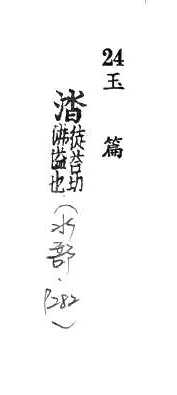 24玉篇
㳫徒荅切
沸溢也(水部.P.282)